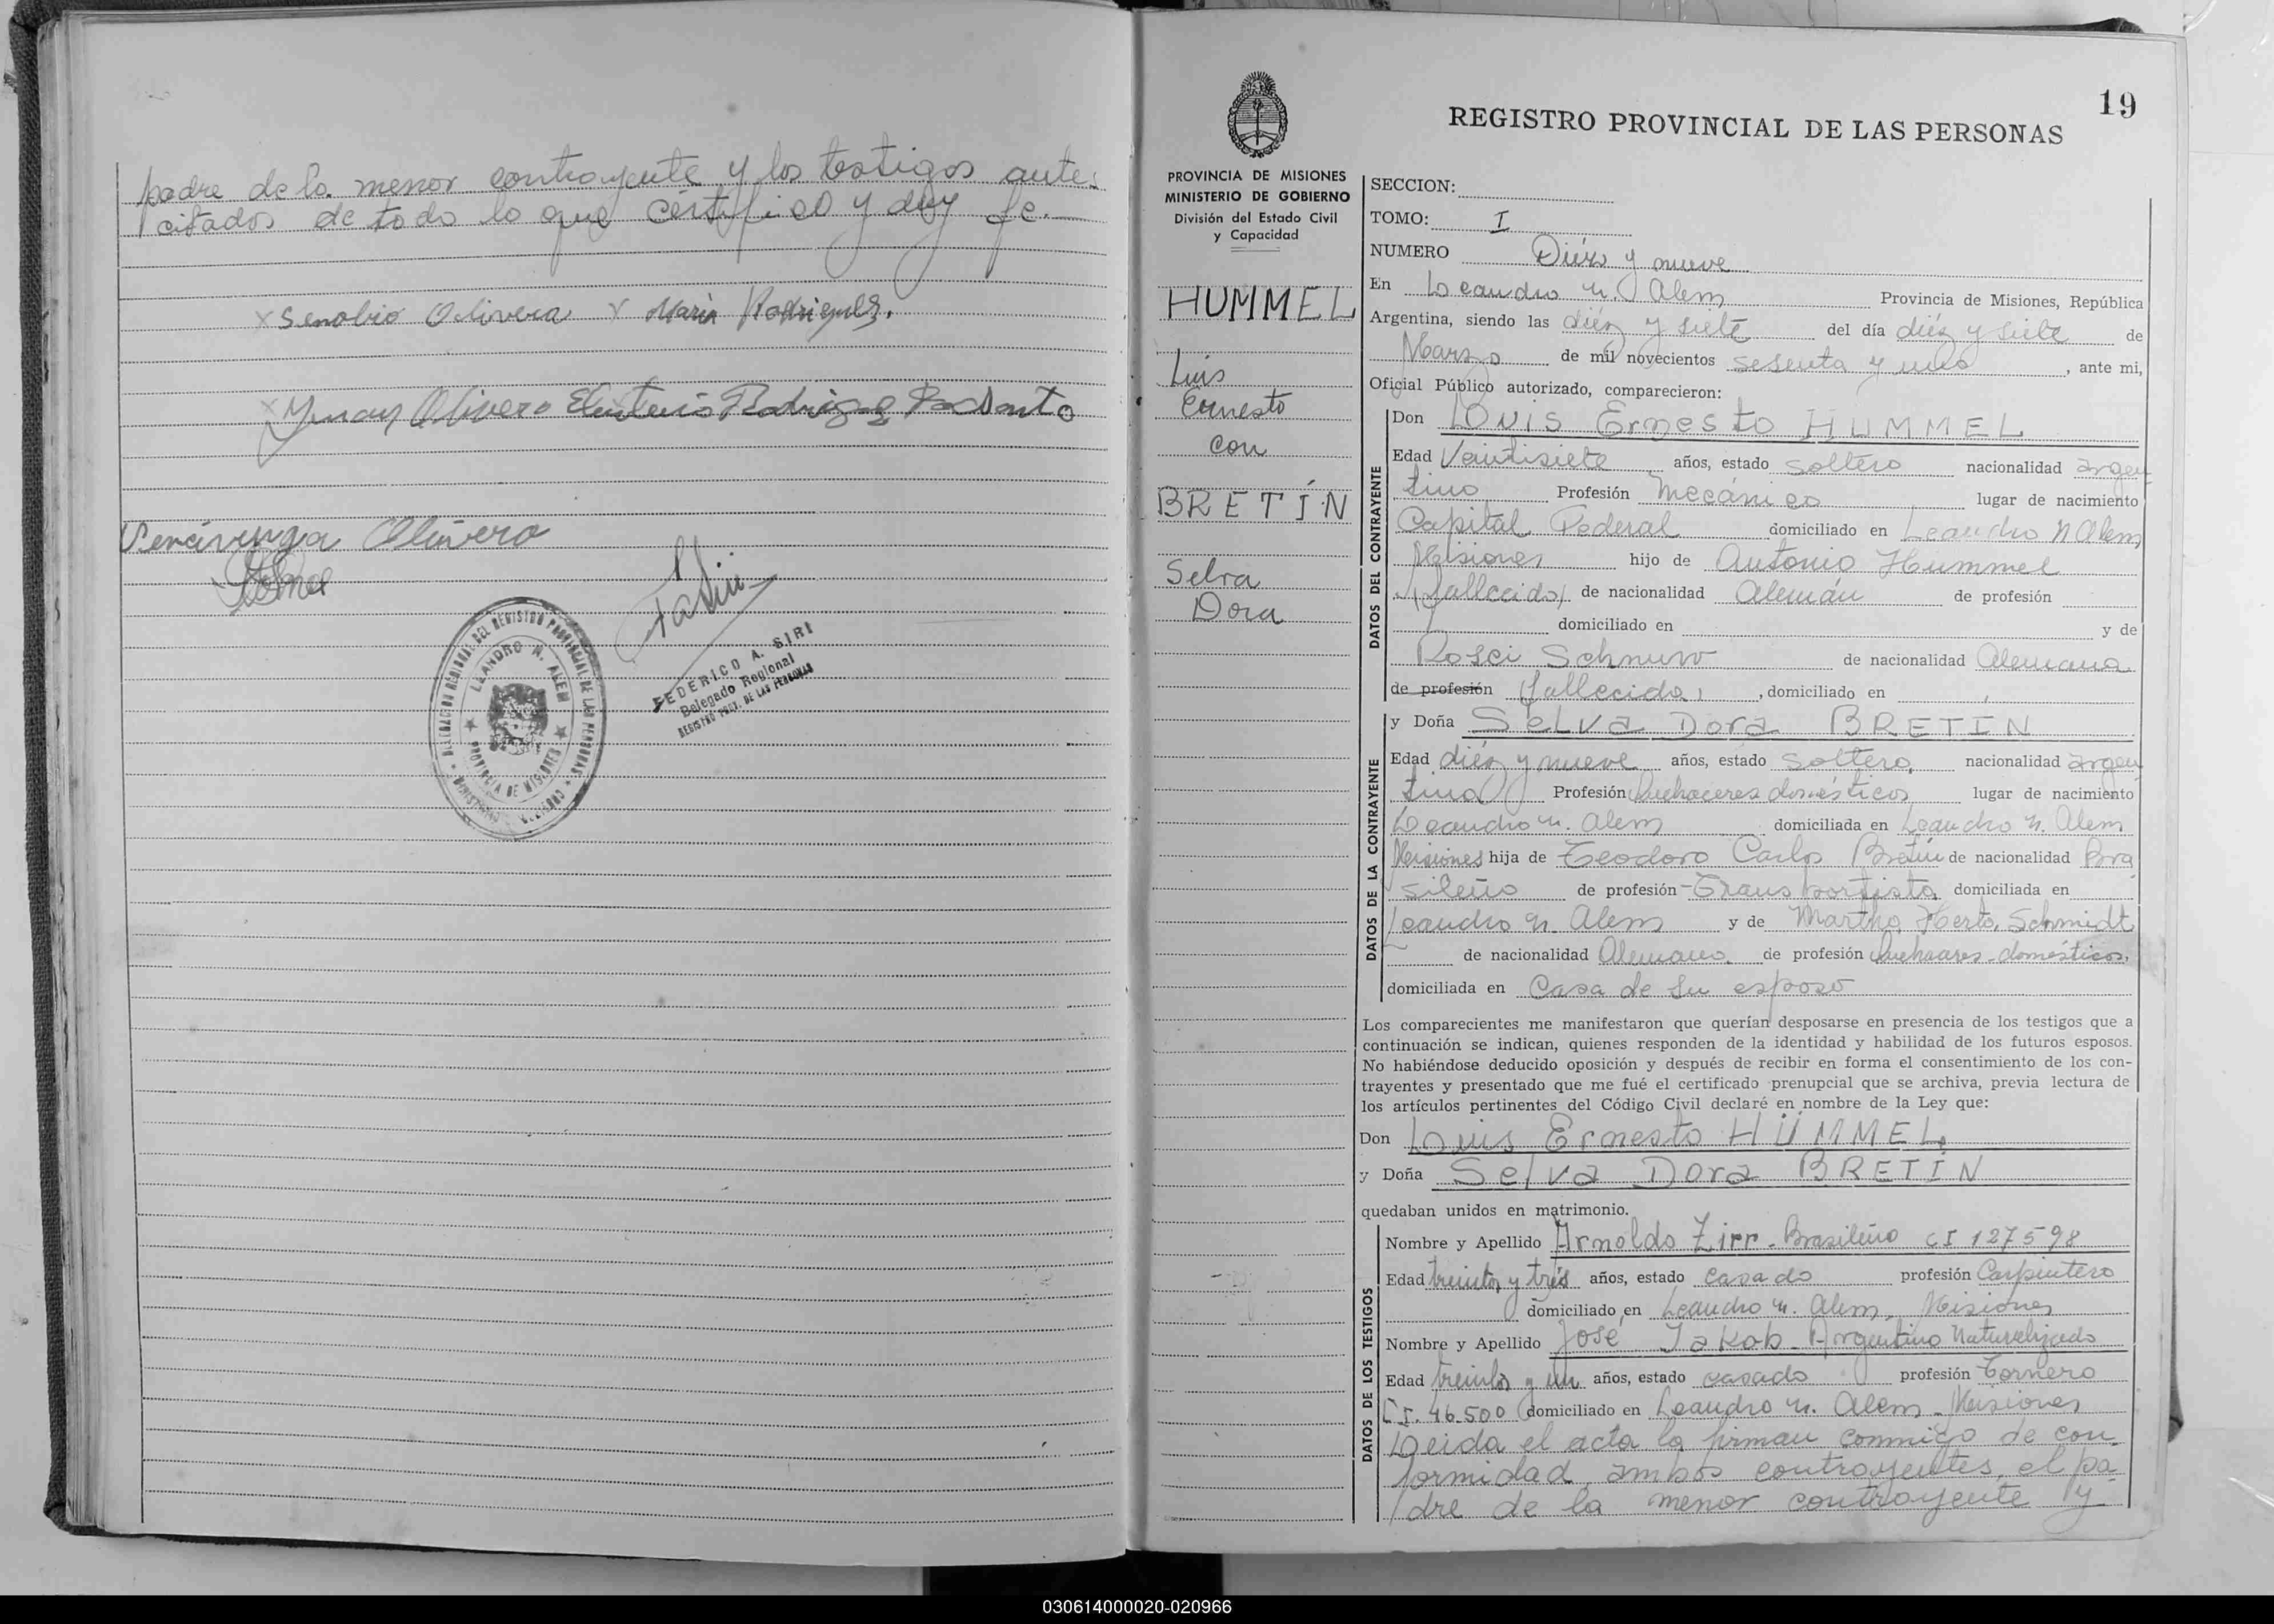 padre de la menor contrayente y los testigos ante-
citados de todo lo que certifico y doy fe.—
x Senobio Olivera x María Rodriguez.
Olivera Eleuterio Rodriguez
Olivera
FEDERICO A. SIRI
Delegado Regional
REGISTRO PROV. DE LAS PERSONAS
DELEGACION REGIONAL DEL REGISTRO PROVINCIAL DE LAS PERSONAS
LEANDRO N. ALEM
PROVINCIA DE MISIONES
19
REGISTRO PROVINCIAL DE LAS PERSONAS
PROVINCIA DE MISIONES
MINISTERIO DE GOBIERNO
División del Estado Civil
y Capacidad
HUMMEL
Luis
Ernesto
con
BRETÍN
Selva
Dora
SECCION:
TOMO: I
NUMERO Diéz y nueve
En Leandro N. Alem Provincia de Misiones, República
Argentina, siendo las diéz y siete del día diéz y siete de
Marzo de mil novecientos sesenta y uno, ante mi,
Oficial Público autorizado, comparecieron:
DATOS DEL CONTRAYENTE
Don LOUIS Ernesto HUMMEL
Edad Veintisiete años, estado soltero nacionalidad argen
tino Profesión Mecánico lugar de nacimiento
Capital Federal domiciliado en Leandro N Alem
Misiones hijo de Antonio Hummel
(fallecido) de nacionalidad Alemán de profesión
domiciliado en y de
Rosei Schnurr de nacionalidad Alemana
de profesión (fallecida), domiciliado en
DATOS DE LA CONTRAYENTE
y Doña Selva Dora BRETIN
Edad diéz y nueve años, estado soltera nacionalidad argen
tina Profesión Quehaceres domésticos lugar de nacimiento
Leandro N. Alem domiciliada en Leandro N. Alem
Misiones hija de Teodoro Carlos Bretín de nacionalidad Bra
sileño de profesión Transportista domiciliada en
Leandro N. Alem y de Martha Herta Schmidt
de nacionalidad Alemana de profesión Quehaceres domésticos,
domiciliada en Casa de su esposo
Los comparecientes me manifestaron que querían desposarse en presencia de los testigos que a
continuación se indican, quienes responden de la identidad y habilidad de los futuros esposos.
No habiéndose deducido oposición y después de recibir en forma el consentimiento de los con-
trayentes y presentado que me fué el certificado prenupcial que se archiva, previa lectura de
los artículos pertinentes del Código Civil declaré en nombre de la Ley que:
Don Luis Ernesto HUMMEL
y Doña Selva Dora BRETÍN
quedaban unidos en matrimonio.
DATOS DE LOS TESTIGOS
Nombre y Apellido Arnoldo Zirr - Brasileño CI 127598
Edad treinta y trés años, estado casado profesión Carpintero
domiciliado en Leandro N. Alem, Misiones
Nombre y Apellido José Jakob - Argentino Naturalizado
Edad treinta y un años, estado casado profesión Tornero
C I. 46.500 domiciliado en Leandro N. Alem - Misiones
Leida el acta la firman conmigo de con-
formidad ambos contrayentes, el pa-
dre de la menor contrayente y
030614000020-020966